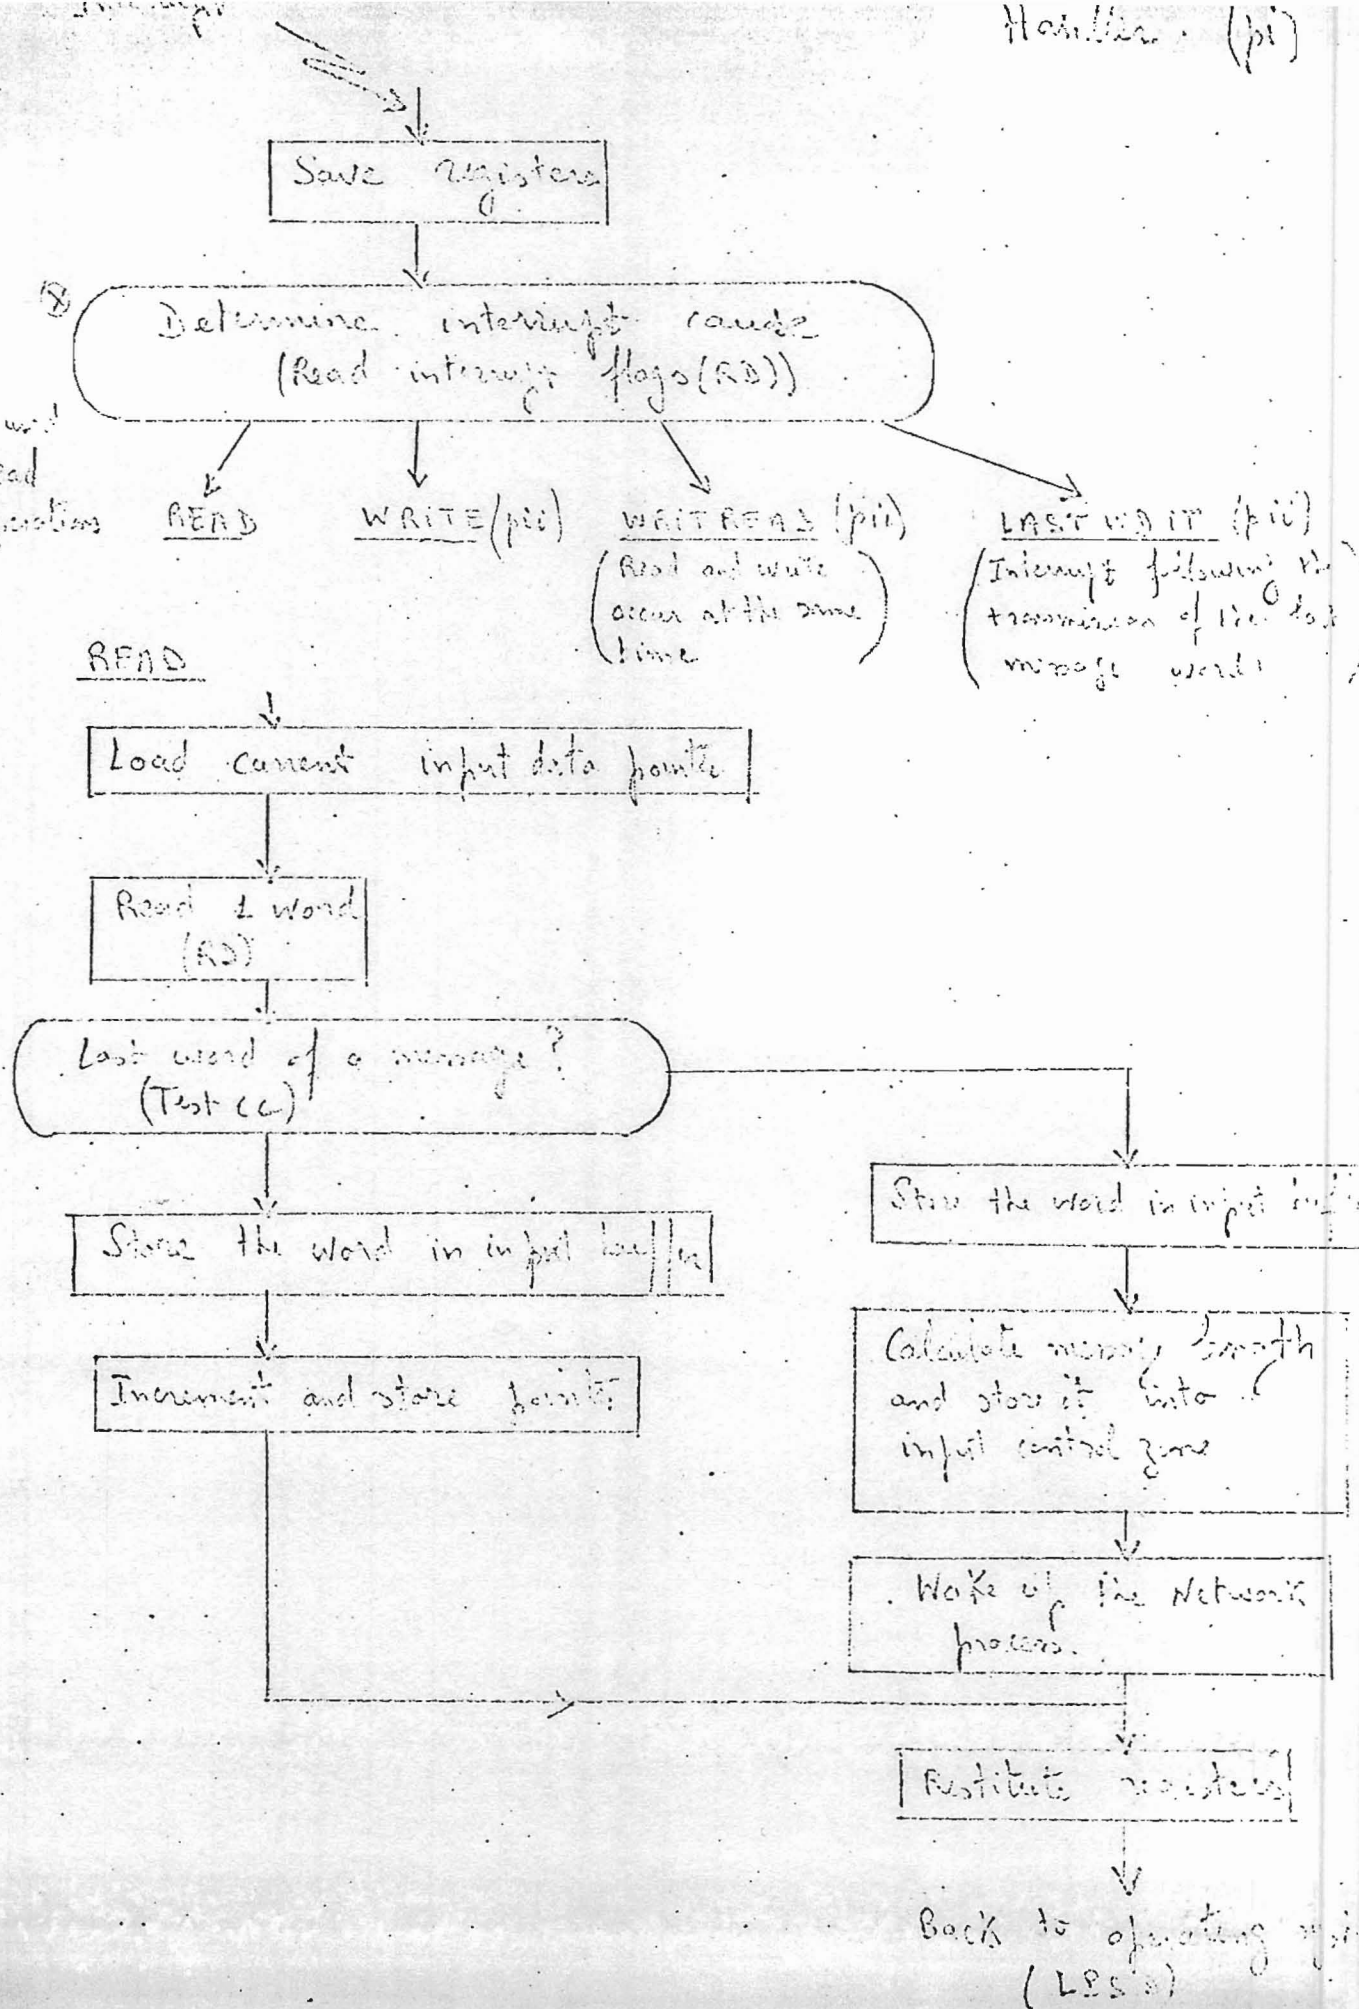 Interrupt
Handler (pi)
Save registers
Determine interrupt cause
(Read interrupt flags (RD))
READ
WRITE (pii)
WRITREAD (pii)
(Read and write
occur at the same
time)
(pii)
(Interrupt following the
transmission of the last
message word)
READ
Load current input data pointer
Read 1 word
(RD)
Last word of a message?
(Test cc)
Store the word in input buffer
Increment and store pointer
Store the word in input
Calculate message length
and store it into
input control zone
Wake up the Network
process.
Restitute registers
Back to operating